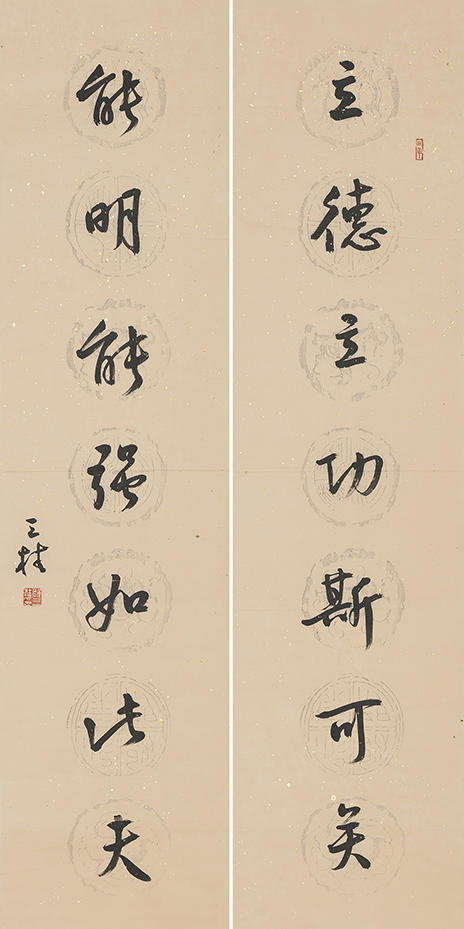 立德立功斯可矣
能明能强如此夫